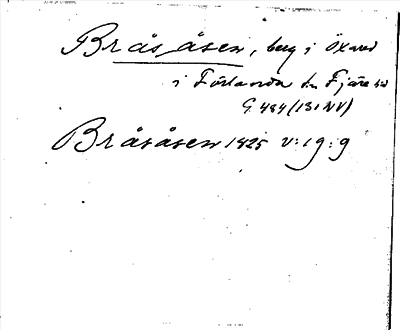 Bråsåsen, berg i Öxared
i Förlanda sn Fjäre hd
G 484 (13 i NV)
Bråsåsen 1825 V:19:9